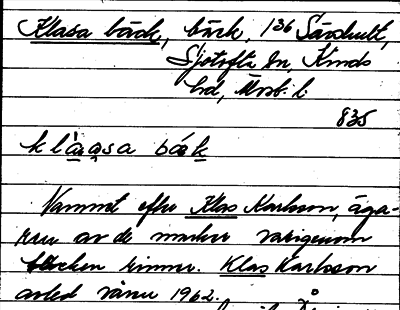 Klasa bäck, bäck, 136 Särshult,
Sjötofta sn, Kinds
hd, Älvsb. l
835
klàasa bäk
Namnet efter Klas Karlsson, äga-
ren av de marker varigenom
bäcken rinner. Klas Karlsson
avled våren 1962.